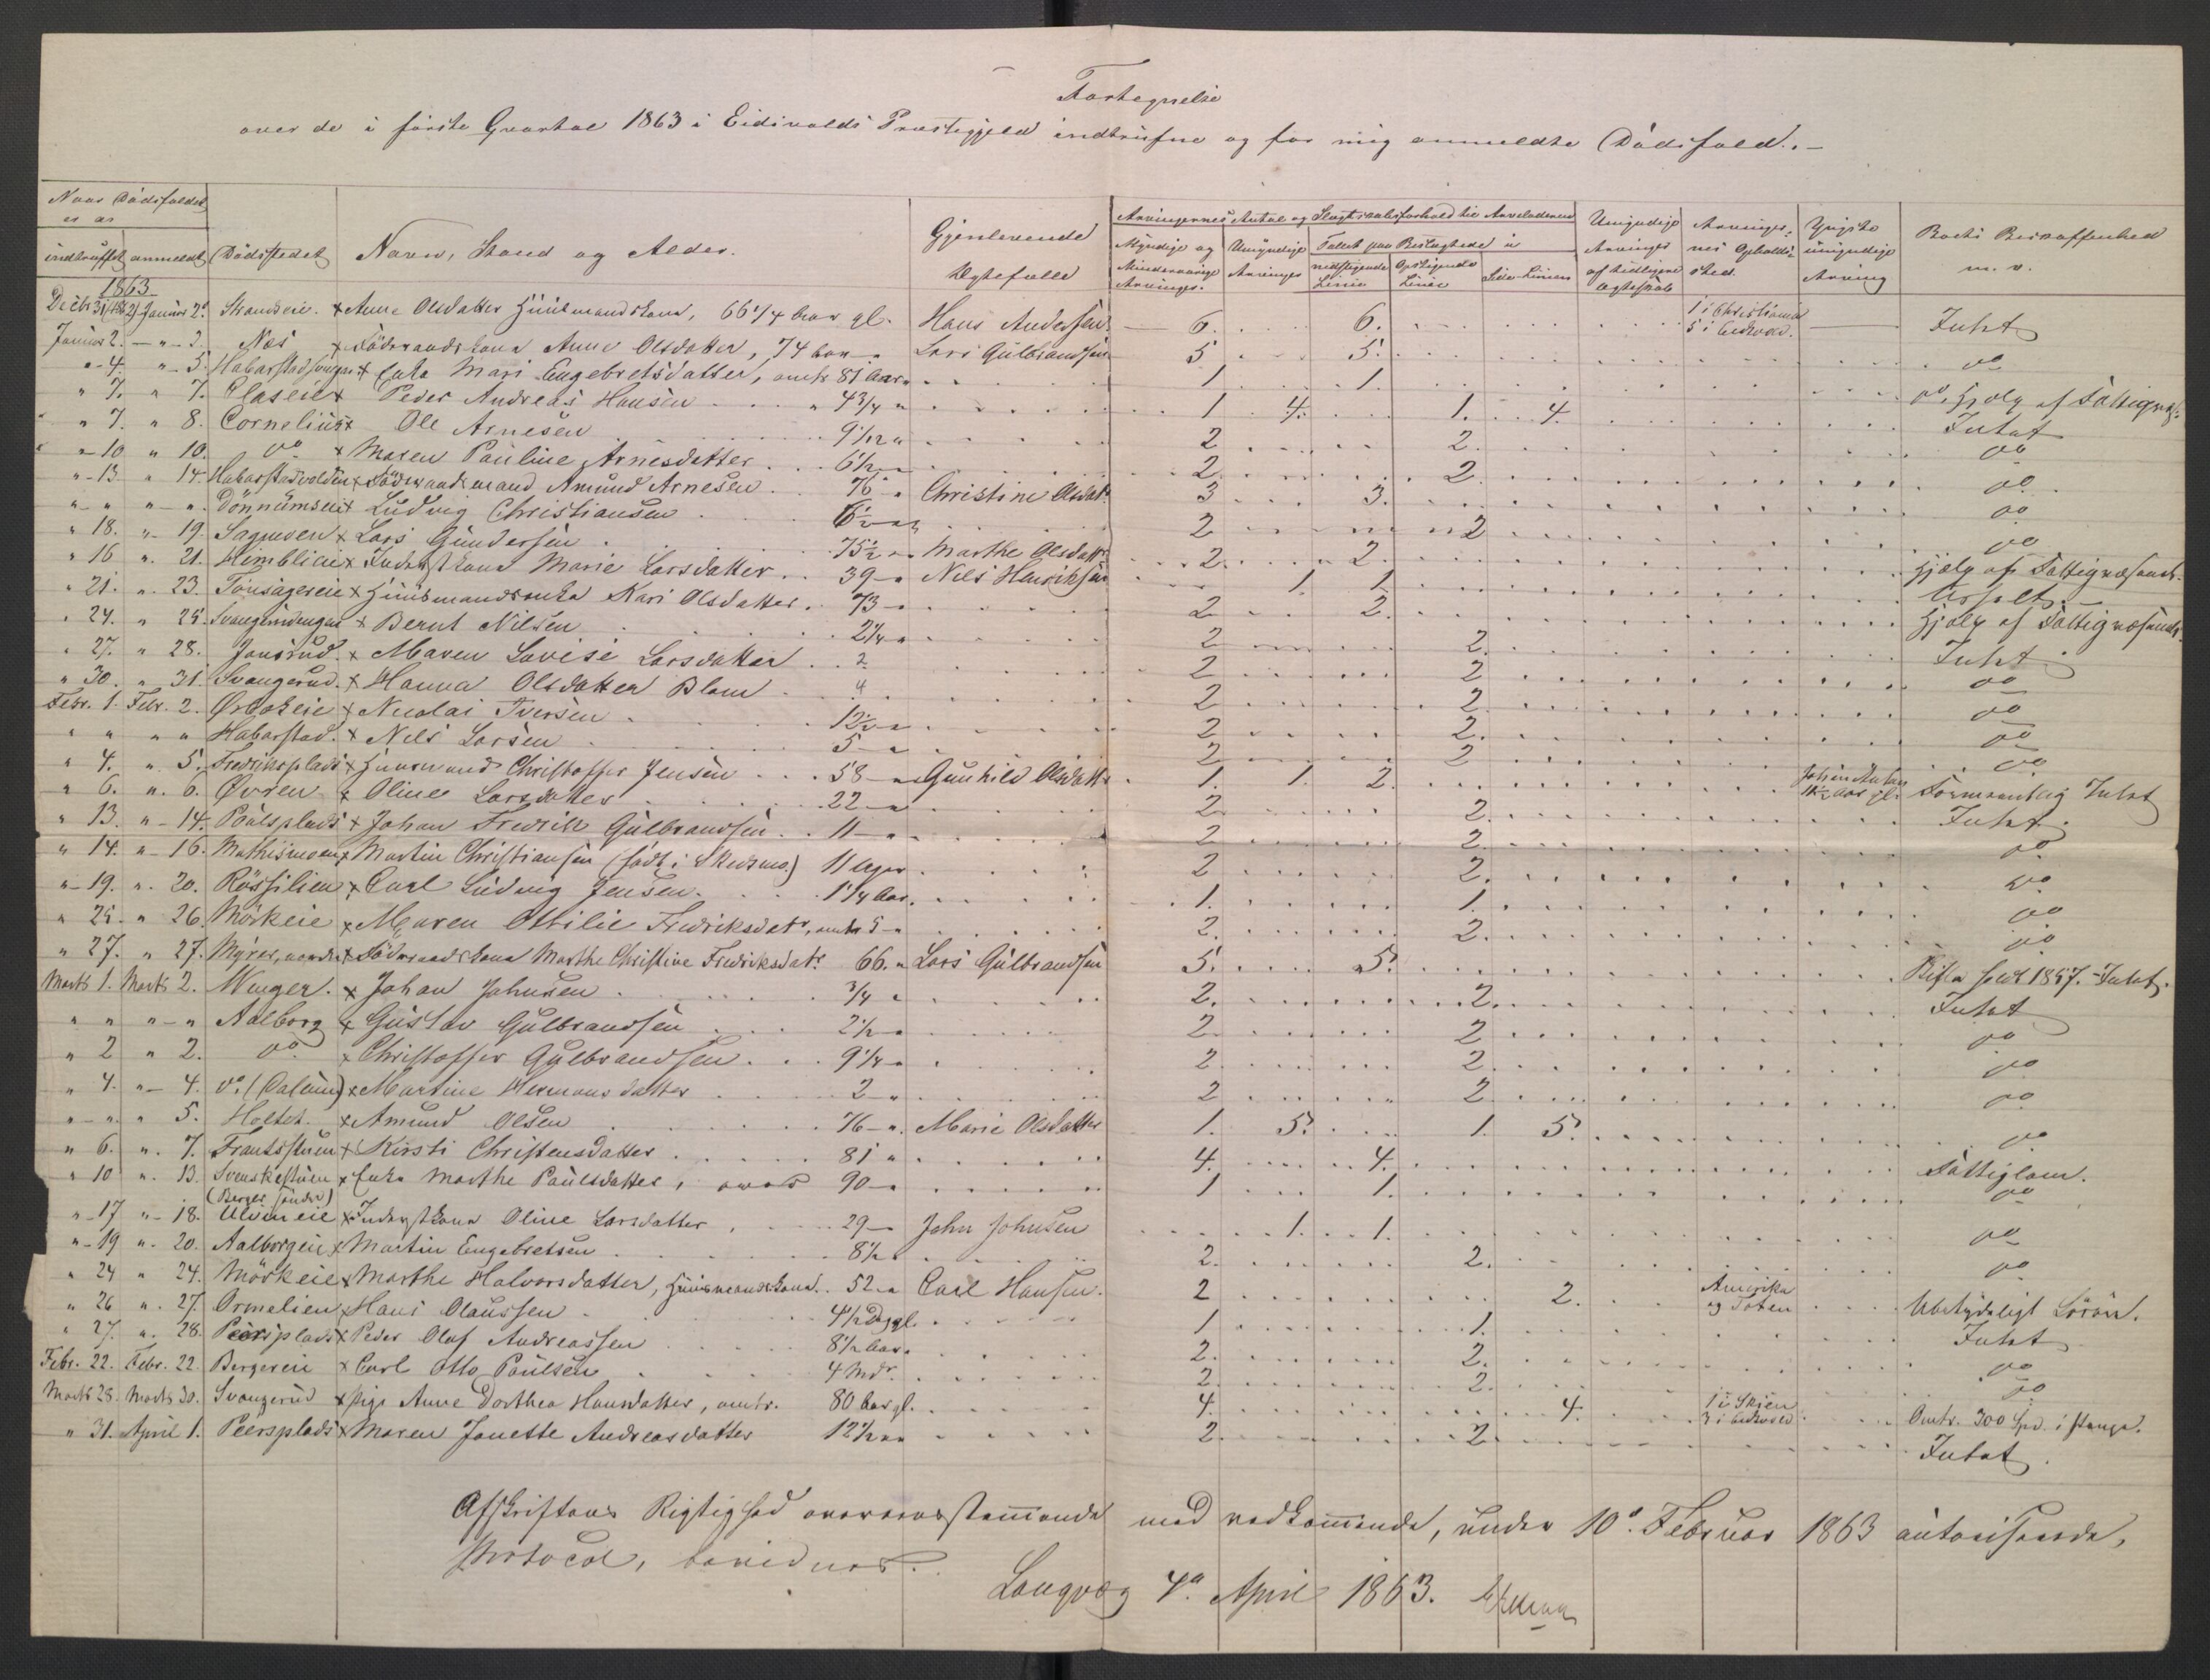 Fortegnelse
over de i første Qvartal 1863 i Eidsvolds Præstegjeld indtrufne og for mig anmeldte Dødsfald. –
Naar Dødsfaldet er
indtruffet anmeldt Dødsstedet Navn, Stand og Alder. Gjenlevende Ægtefælle Arvingernes Antal og Slægtskabsforhold til Arveladeren Umyndige Arvinger af tidligere Ægteskab Arvingernes Opholdssted. Yngste umyndige Arving Boets Beskaffenhed m. v.
Myndige og Mindreaarige Arvinger. Umyndige Arvinger Tallet paa Beslægtede i nedstigende Linie Opstigende Linie Side-Linien
1863
Decbr 31 1862 Januar 2. Strandeie. x Anne Olsdatter Huusmandskone, 66 1/4 Aar gl. Hans Andersen 6. 6. 1 i Christiania 5 i Eidsvold. Intet
Januar 2. – „ – 2. Næs x Føderaadskone Anne Olsdatter, 74 Aar „ Lars Gulbrandsen 5 5. do
„ 4. „ 5. Habarstad x Enke Mari Engebretsdatter, omtr. 81 Aar „ 1 1. do, Hjelp af Fattigvæs:
„ 7. „ 7. Olaseie x Peder Andreas Hansen „ 4 3/4 „ 1 4. 1. 4. Intet
„ 7. „ 8. Cornelius x Ole Arnesen 9 1/12 „ 2 2. do
„ 10 „ 10. do x Maren Pauline Arnesdatter 6 1/2 „ 2 2. do
„ 13 „ 14. Habarstadvolden x Føderaadsmand Amund Arnesen 76 „ Christine Olsdatt. 3 3. do
„ „ „ „ Dønnumseie x Ludvig Christiansen 6 1/2 „ 2 2 do
„ 18. „ 19. Sagmoen x Lars Gundersen 75 1/2 „ Marthe Olsdatt. 2. 2. Hjelp af Fattigvæsenet.
„ 16 „ 21. Himblieie x Inderstkone Marie Larsdatter 39 „ Niels Henriksen 1 1. Uskiftet.
„ 21. „ 23. Tønsagereie x Huusmandsenke Kari Olsdatter. 73 – „ 2 2. Hjelp af Fattigvæsenet.
„ 24. „ 25. x Bernt Nilsen 2 1/4 „ 2 2. Intet
„ 27. „ 28. Jønsrud. x Maren Lovise Larsdatter 2 2 2 do
„ 30. „ 31. Svangerud. x Hanna Olsdatter Blom 4 2 2. do
Febr. 1. Febr. 2. Ørbekeie x Nicolai Iversen 12 1/2 „ 2 2. do
„ „ „ „ Habarstad. x Nils Larsen 5 „ 2 2 do
„ 4. „ 5. Fredriksplads x Huusmand Christoffer Jensen 58 – „ Gunhild Olsdatter 1. 1. 2. Johan Anton 11 1/2 Aar gl. Formeentlig Intet
„ 6. „ 6. Øvren x Oline Larsdatter 22 – „ 2 2. Intet
„ 13. „ 14. Paulsplads x Johan Fredrik Gulbrandsen 11 – „ 2 2. do
„ 14. „ 16. Mathismoen x Martin Christiansen (født i Skedsmo) 11 Uger 2 2. do
„ 19. „ 20. Røssilien x Carl Ludvig Jensen 1 1/4 Aar. 1. 1. do
„ 25. „ 26. Mörkeie x Maren Ottilie Fredriksdatr, omtr. 5 „ 2. 2. do
„ 27. „ 27. Myrer, nordre x Føderaadskone Marthe Christine Fredriksdatr. 66. „ Lars Gulbrandsen 5. 5. Skifte holdt 1857. – Intet.
Marts 1. Marts 2. Wenger. x Johan Johnsen 3/4 „ 2. 2. Intet
„ „ „ „ Aalborg x Gustav Gulbrandsen 2 1/2 „ 2 2 do
„ 2 „ 2. do x Christoffer Gulbrandsen 9 1/4 „ 2 2. do
„ 4. „ 4. do. (Dalen) x Martine Hermansdatter 2 „ 2 2 do
„ „ „ 5. Holtet. x Amund Olsen 76 – „. Marie Olsdatter 1. 5. 1. 5. do
„ 6. „ 7. Frantsstuen x Kirsti Christensdatter 81 „ 4. 4. Fattiglem.
„ 10 „ 13. Svenskestuen x Enke Marthe Paulsdatter, over 90 „ 1 1. do
(Berger søndre)
„ 17 „ 18. Ulvineie x Inderstkone Oline Larsdatter 29 – John Johnsen 1. 1. do
„ 19 „ 20. Aalborgeie x Martin Engebretsen 8 1/2 2. 2. do
„ 24 „ 24. Mörkeie x Marthe Halvorsdatter, Huusmandskone. 52 „ Carl Hansen. 2 2. Amerika og Toten Ubetydeligt Løsøre.
„ 26 „ 27. Ormelien x Hans Olaussen 4 1/2 Dg gl. 1 1. Intet
„ 27. „ 28. Peersplads x Peder Olaf Andreassen 8 1/2 Aar. 2. 2. do
Febr. 22. Febr. 22. Bergereie x Carl Otto Paulsen 4 Mdr. 2 2. do
Marts 28. Marts 30. Svangerud x Pige Anne Dorthea Hansdatter, omtr. 80 Aar gl. 4. 4. 1 i Skien 3 i Eidsvold Omtr. 300 Spd. i Penge.
„ 31. April 1. Peersplads x Maren Janette Andreasdatter 12 1/2 „ 2 2 Intet.
Afskriftens Rigtighed overensstemmende med vedkommende, under 10d. Februar 1863 autoriserede,
Protocol, bevidnes.
Langvæg 4d. April 1863.